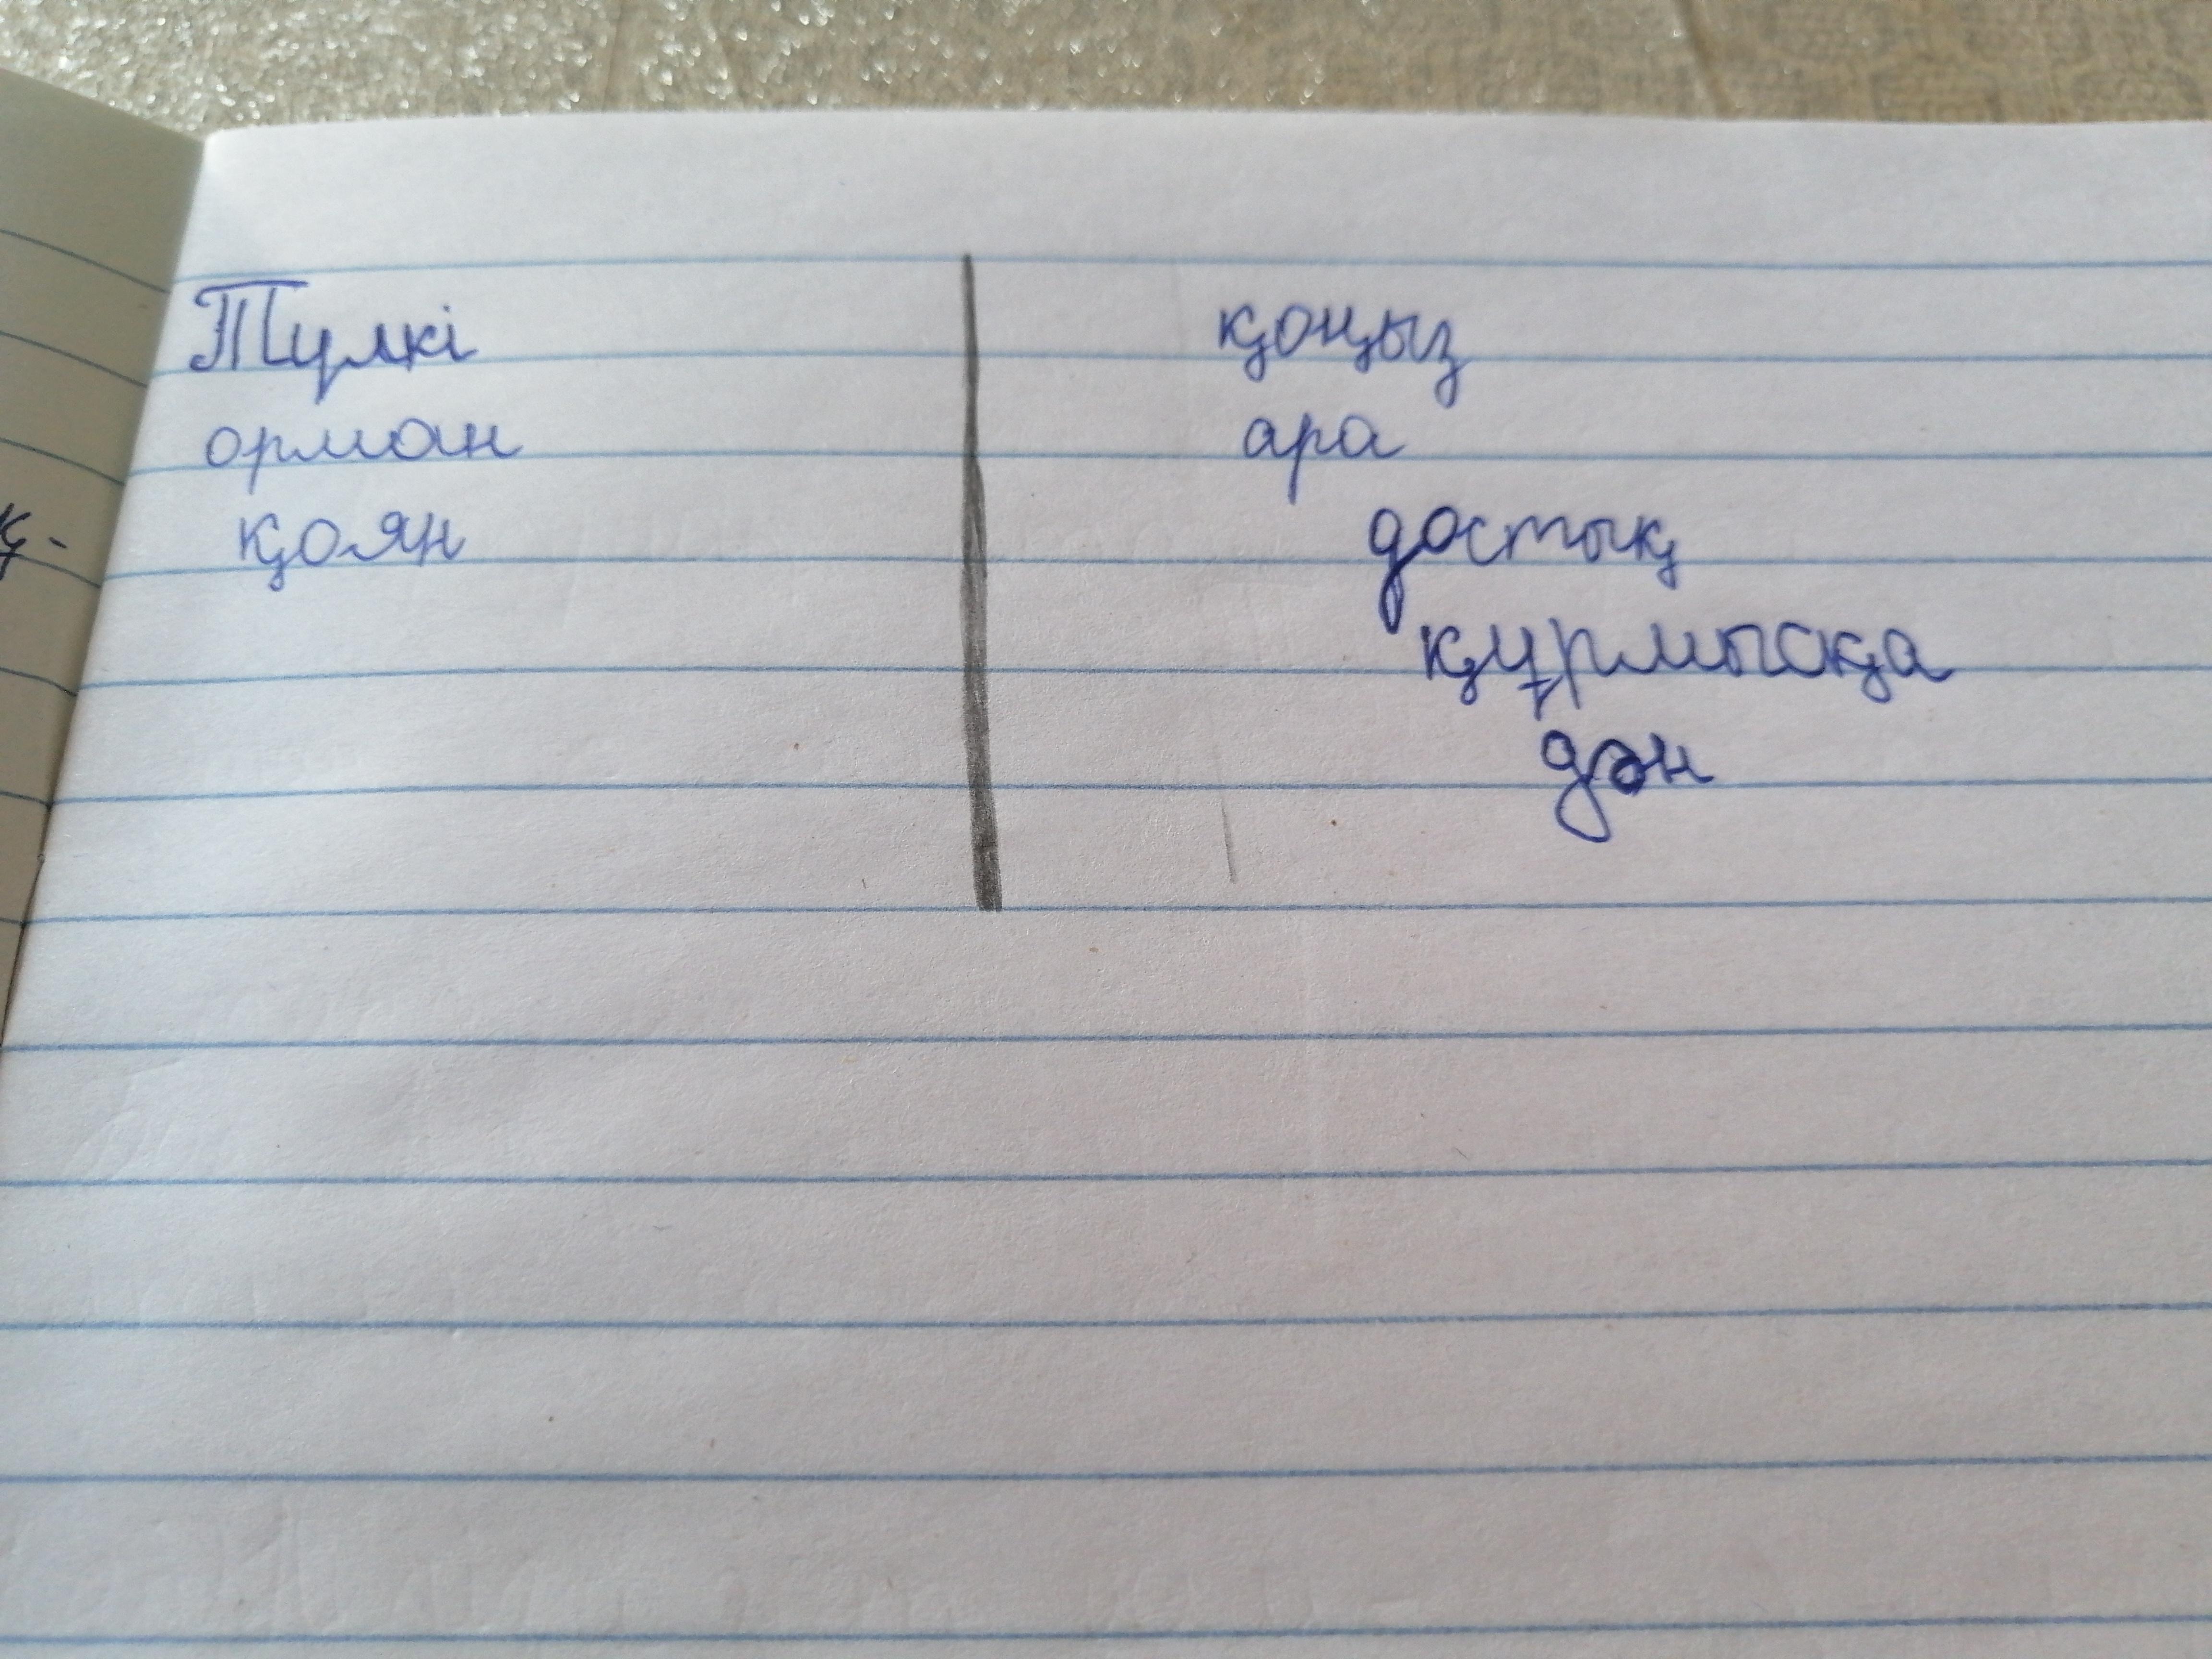 Түлкі
орман
қоян
қоңыз
ара
достық
құрмысқа
дән
қ.